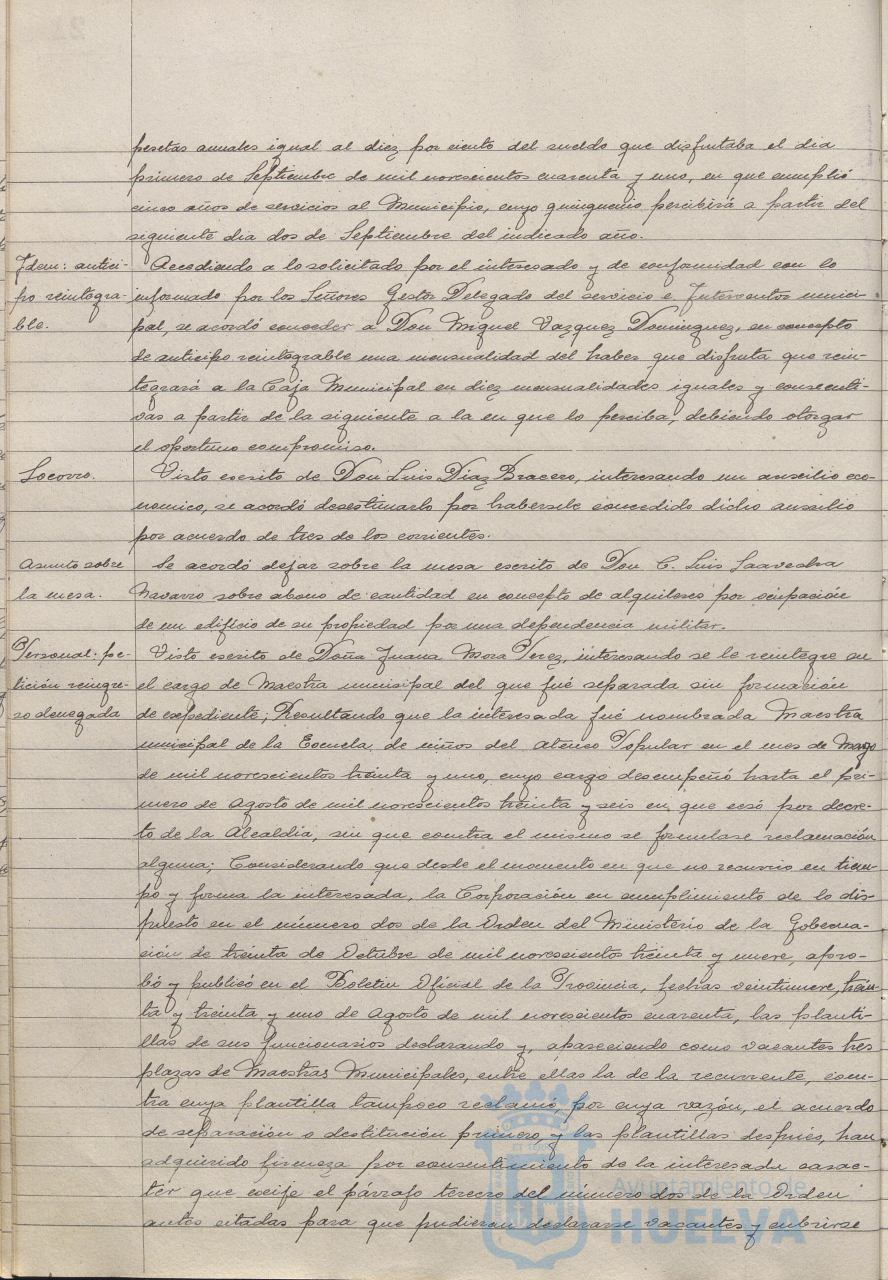 pesetas anuales igual al diez por ciento del sueldo que disfrutaba el dia
primero de Septiembre de mil novescientos cuarenta y uno, en que cumplió
cinco años de servicios al Municipio, cuyo quinquenio percibirá a partir del
siguiente dia dos de Septiembre del indicado año.
Idem: antici-
po reintegra-
ble.
Accediendo a lo solicitado por el interesado y de conformidad con lo
informado por los Señores Gestor Delegado del servicio e Interventor munici-
pal, se acordó conceder a Don Miguel Vazquez Dominguez, en concepto
de anticipo reintegrable una mensualidad del haber que disfruta que rein-
tegrará a la Caja Municipal en diez mensualidades iguales y consecuti-
vas a partir de la siguiente a la en que lo perciba, debiendo otorgar
el oportuno compromiso.
Socorro.
Visto escrito de Don Luis Diaz Bracero, interesando un auxilio eco-
nomico, se acordó desestimarlo por habersele concedido dicho auxilio
por acuerdo de tres de los corrientes.
Asunto sobre
la mesa.
Se acordó dejar sobre la mesa escrito de Don C. Luis Saavedra
Navarro sobre abono de cantidad en concepto de alquileres por ocupación
de un edificio de su propiedad por una dependencia militar.
Personal: pe-
tición reingre-
so denegada
Visto escrito de Doña Juana Mora Perez, interesando se le reintegre en
el cargo de Maestra municipal del que fué separada sin formación
de expediente; Resultando que la interesada fué nombrada Maestra
municipal de la Escuela de niños del Ateneo Popular en el mes de Mayo
de mil novescientos treinta y uno, cuyo cargo desempeñó hasta el pri-
mero de Agosto de mil novescientos treinta y seis en que cesó por decre-
to de la Alcaldia, sin que contra el mismo se formulase reclamación
alguna; Considerando que desde el momento en que no recurrio en tiem-
po y forma la interesada, la Corporación en cumplimiento de lo dis-
puesto en el número dos de la Orden del Ministerio de la Goberna-
ción de treinta de Octubre de mil novescientos treinta y nueve, apro-
bó y publicó en el Boletin Oficial de la Provincia, fechas veintinueve, trein-
ta y treinta y uno de Agosto de mil novescientos cuarenta, las planti-
llas de sus funcionarios declarando y, apareciendo como vacantes tres
plazas de Maestras Municipales, entre ellas la de la recurrente, con-
tra cuya plantilla tampoco reclamó, por cuya razón, el acuerdo
de separación o destitución primero, y las plantillas después, han
adquirido firmeza por consentimiento de la interesada carac-
ter que exije el párrafo tercero del número dos de la Orden
antes citadas para que pudieran declararse vacantes y cubrirse
Ayuntamiento de
HUELVA